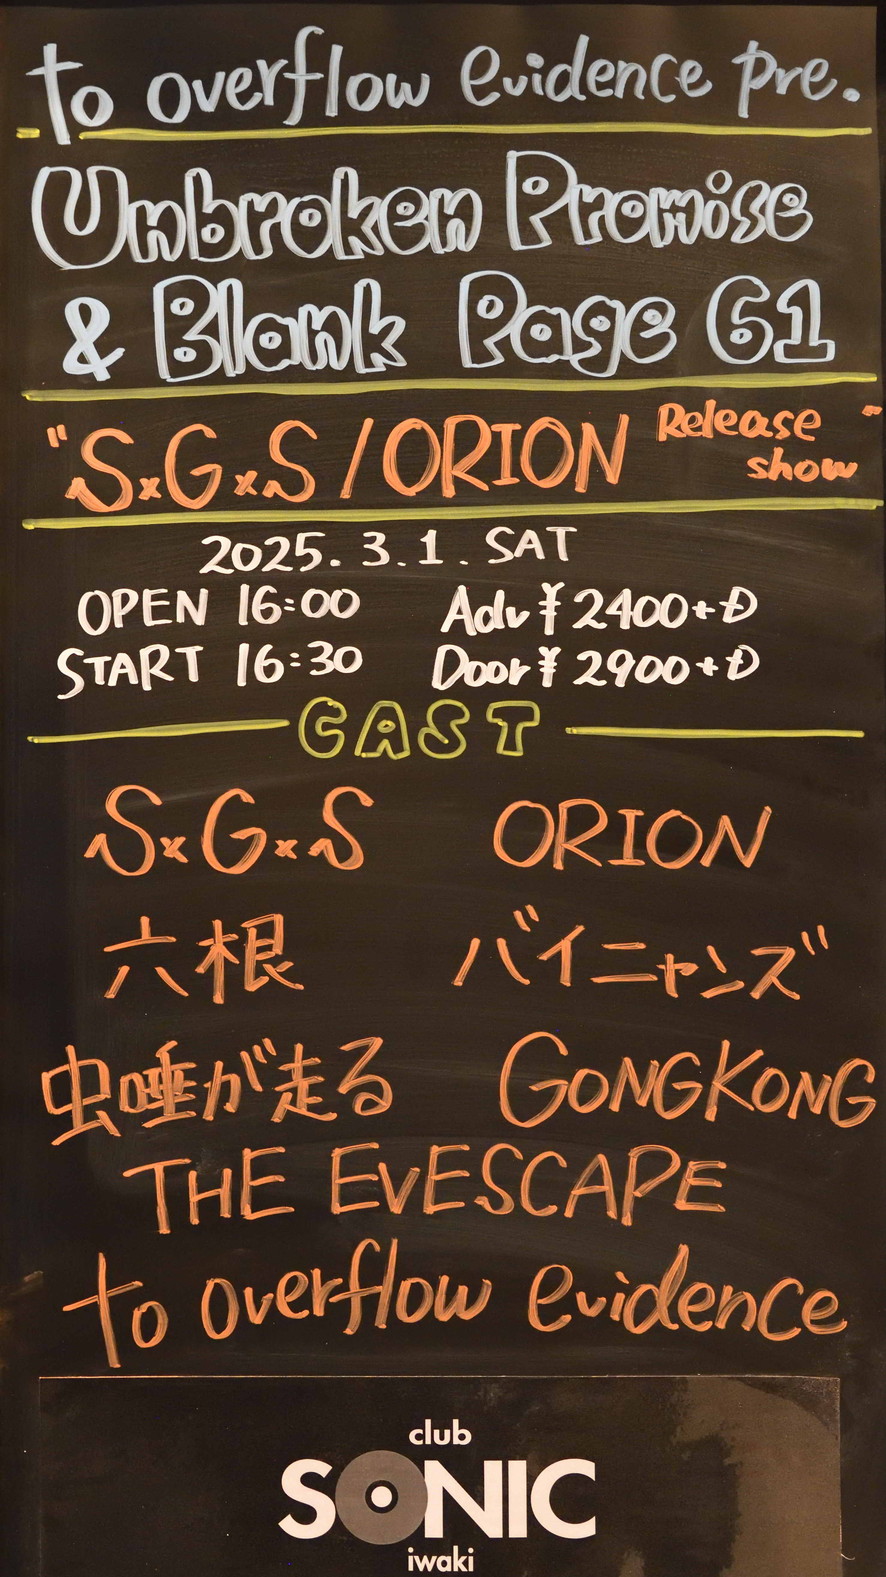 to overflow evidence pre.
Unbroken Promise
& Blank Page 61
"SxGxS/ORION Release show"
2025.3.1.SAT
OPEN 16:00 Adv ¥2400+D
START 16:30 Door ¥2900+D
CAST
SxGxS ORION
六根 バイニャンズ"
虫唾が走る GONGKONG
THE EVESCAPE
to overflow evidence
club
SONIC
iwaki